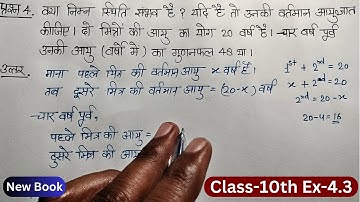 प्रश्न 4. क्या निम्न स्थिति संभव है? यदि है तो उनकी वर्तमान आयु ज्ञात
कीजिए। दो मित्रों की आयु का योग 20 वर्ष है। चार वर्ष पूर्व
उनकी आयु (वर्षों में) का गुणनफल 48 था।
उत्तर. माना पहले मित्र की वर्तमान आयु x वर्ष है।
1st + 2nd = 20
तब दूसरे मित्र की वर्तमान आयु = (20-x) वर्ष
x + 2nd = 20
2nd = 20-x
चार वर्ष पूर्व,
20-4 = 16
पहले मित्र की आयु =
दूसरे मित्र की आयु
New Book
Class-10th Ex-4.3